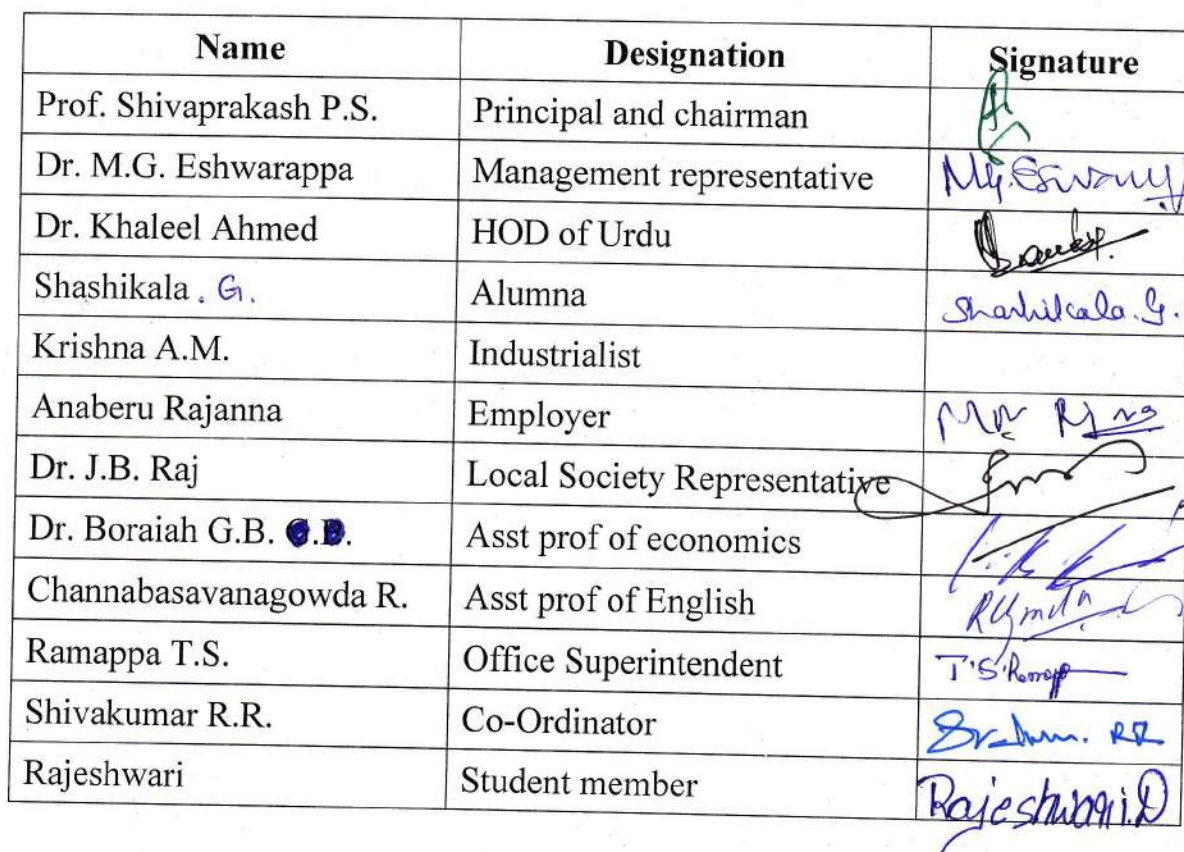 Name Designation Signature
Prof. Shivaprakash P.S. Principal and chairman
Dr. M.G. Eshwarappa Management representative
Dr. Khaleel Ahmed HOD of Urdu
Shashikala . G. Alumna Shashikala. G.
Krishna A.M. Industrialist
Anaberu Rajanna Employer
Dr. J.B. Raj Local Society Representative
Dr. Boraiah G.B. Asst prof of economics
Channabasavanagowda R. Asst prof of English
Ramappa T.S. Office Superintendent T.S.
Shivakumar R.R. Co-Ordinator RR
Rajeshwari Student member Rajeshwari.D